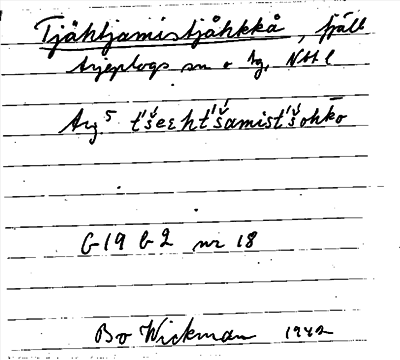 Tjähtjamistjåhkkå, fjäll
Arjeplogs sn o tg, Nbt l
Arj⁵ t́śeεht́śamist́śohk̄o
G 19 b 2 nr 18
Bo Wickman 1942